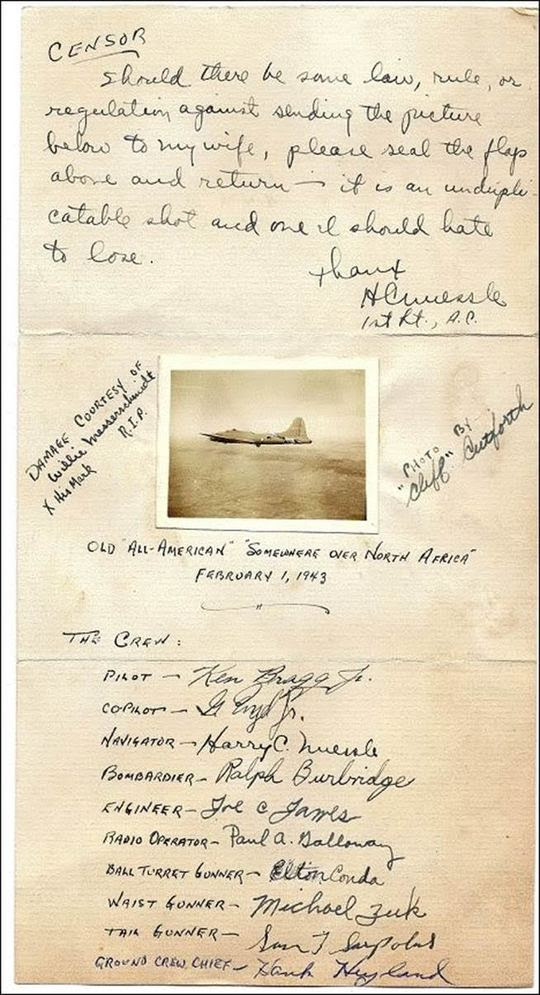 CENSOR
Should there be some law, rule, or
regulation against sending the picture
below to my wife, please seal the flaps
above and return — it is an undupli-
catable shot and one I should hate
to lose.
Thanx
HCNuessle
1st Lt., A.C.
DAMAGE COURTESY OF
Willie Messerschmidt
R.I.P.
X His Mark
"PHOTO BY
Cliff" Cutforth
OLD "ALL-AMERICAN" "SOMEWHERE OVER NORTH AFRICA"
FEBRUARY 1, 1943
THE CREW:
PILOT — Ken Bragg Jr.
COPILOT — G Boyd Jr.
NAVIGATOR — Harry C. Nuessle
BOMBARDIER — Ralph Burbridge
ENGINEER — Joe C James
RADIO OPERATOR — Paul A. Galloway
BALL TURRET GUNNER — Elton Conda
WAIST GUNNER — Michael Zuk
TAIL GUNNER — Sam T Sarpolus
GROUND CREW CHIEF — Hank Hyland